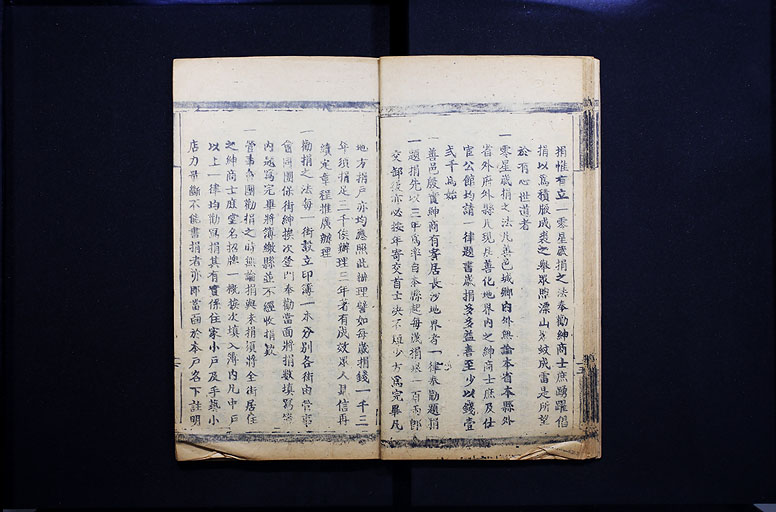 捐惟有立一零星歲捐之法奉勸紳商士庶踴躍倡
捐以為積腋成裘之舉眾煦漂山聚蚊成雷是所望
於有心世道者
一零星歲捐之法凡善邑城鄉內外無論本省本縣外
省外府外縣凡現在善化地界內之紳商士庶及仕
宦公館均請一律題書歲捐多多益善至少以錢壹
弍千為始
一善邑殷實紳商有寄居長沙地界者一律奉勸題捐
一題捐先以三年為率自本縣起每歲捐銀一百兩即
交卸後亦必按年寄交首士決不短少方為完畢凡
地方捐戶亦均應照此辦理譬如每歲捐錢一千三
年須捐足三千俟辦理三年著有成效眾人見信再
續完章程推廣辦理
一勸捐之法每一街設立印簿一本分別各街由管事
會同團保街紳挨次登門奉勸當面將捐數填寫簿
內越寫完畢將簿繳縣並不經收捐欵
一管事會同團勸捐之時無論捐與未捐須將全街居住
之紳商士庶堂名招牌一概挨次填入簿內凡中戶
以上一律均勸寫捐其有實係住家小戶及手藝小
店力量斷不能書捐者亦即當面於本戶名下註明